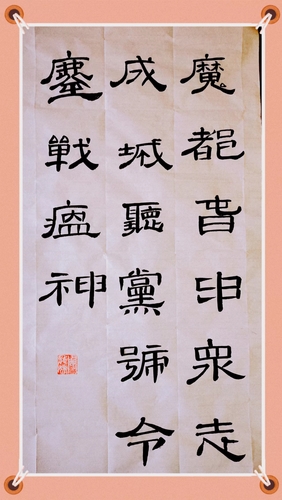 魔都旾申衆志
成城聽黨號令
鏖戰瘟神